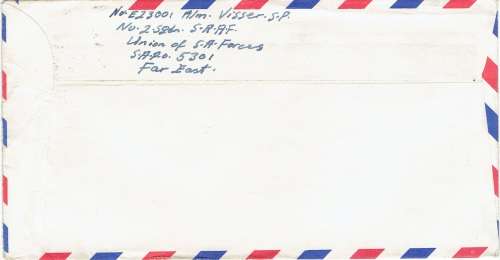 No E23001 A/m. Visser. S.P.
No. 2 Sqdn. S.A.A.F.
Union of S.A. Forces
S.A.P.O. 5301
Far East.